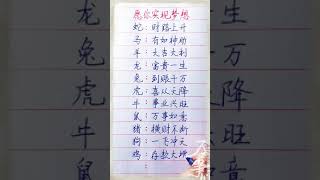 愿你实现梦想
蛇：财路上升
马：有如神助
羊：大吉大利
龙：富贵一生
兔：到账千万
虎：喜从天降
牛：事业兴旺
鼠：万事如意
猪：横财不断
狗：一飞冲天
鸡：存款大增
龙
兔
虎
牛
鼠
生
万
降
旺
意